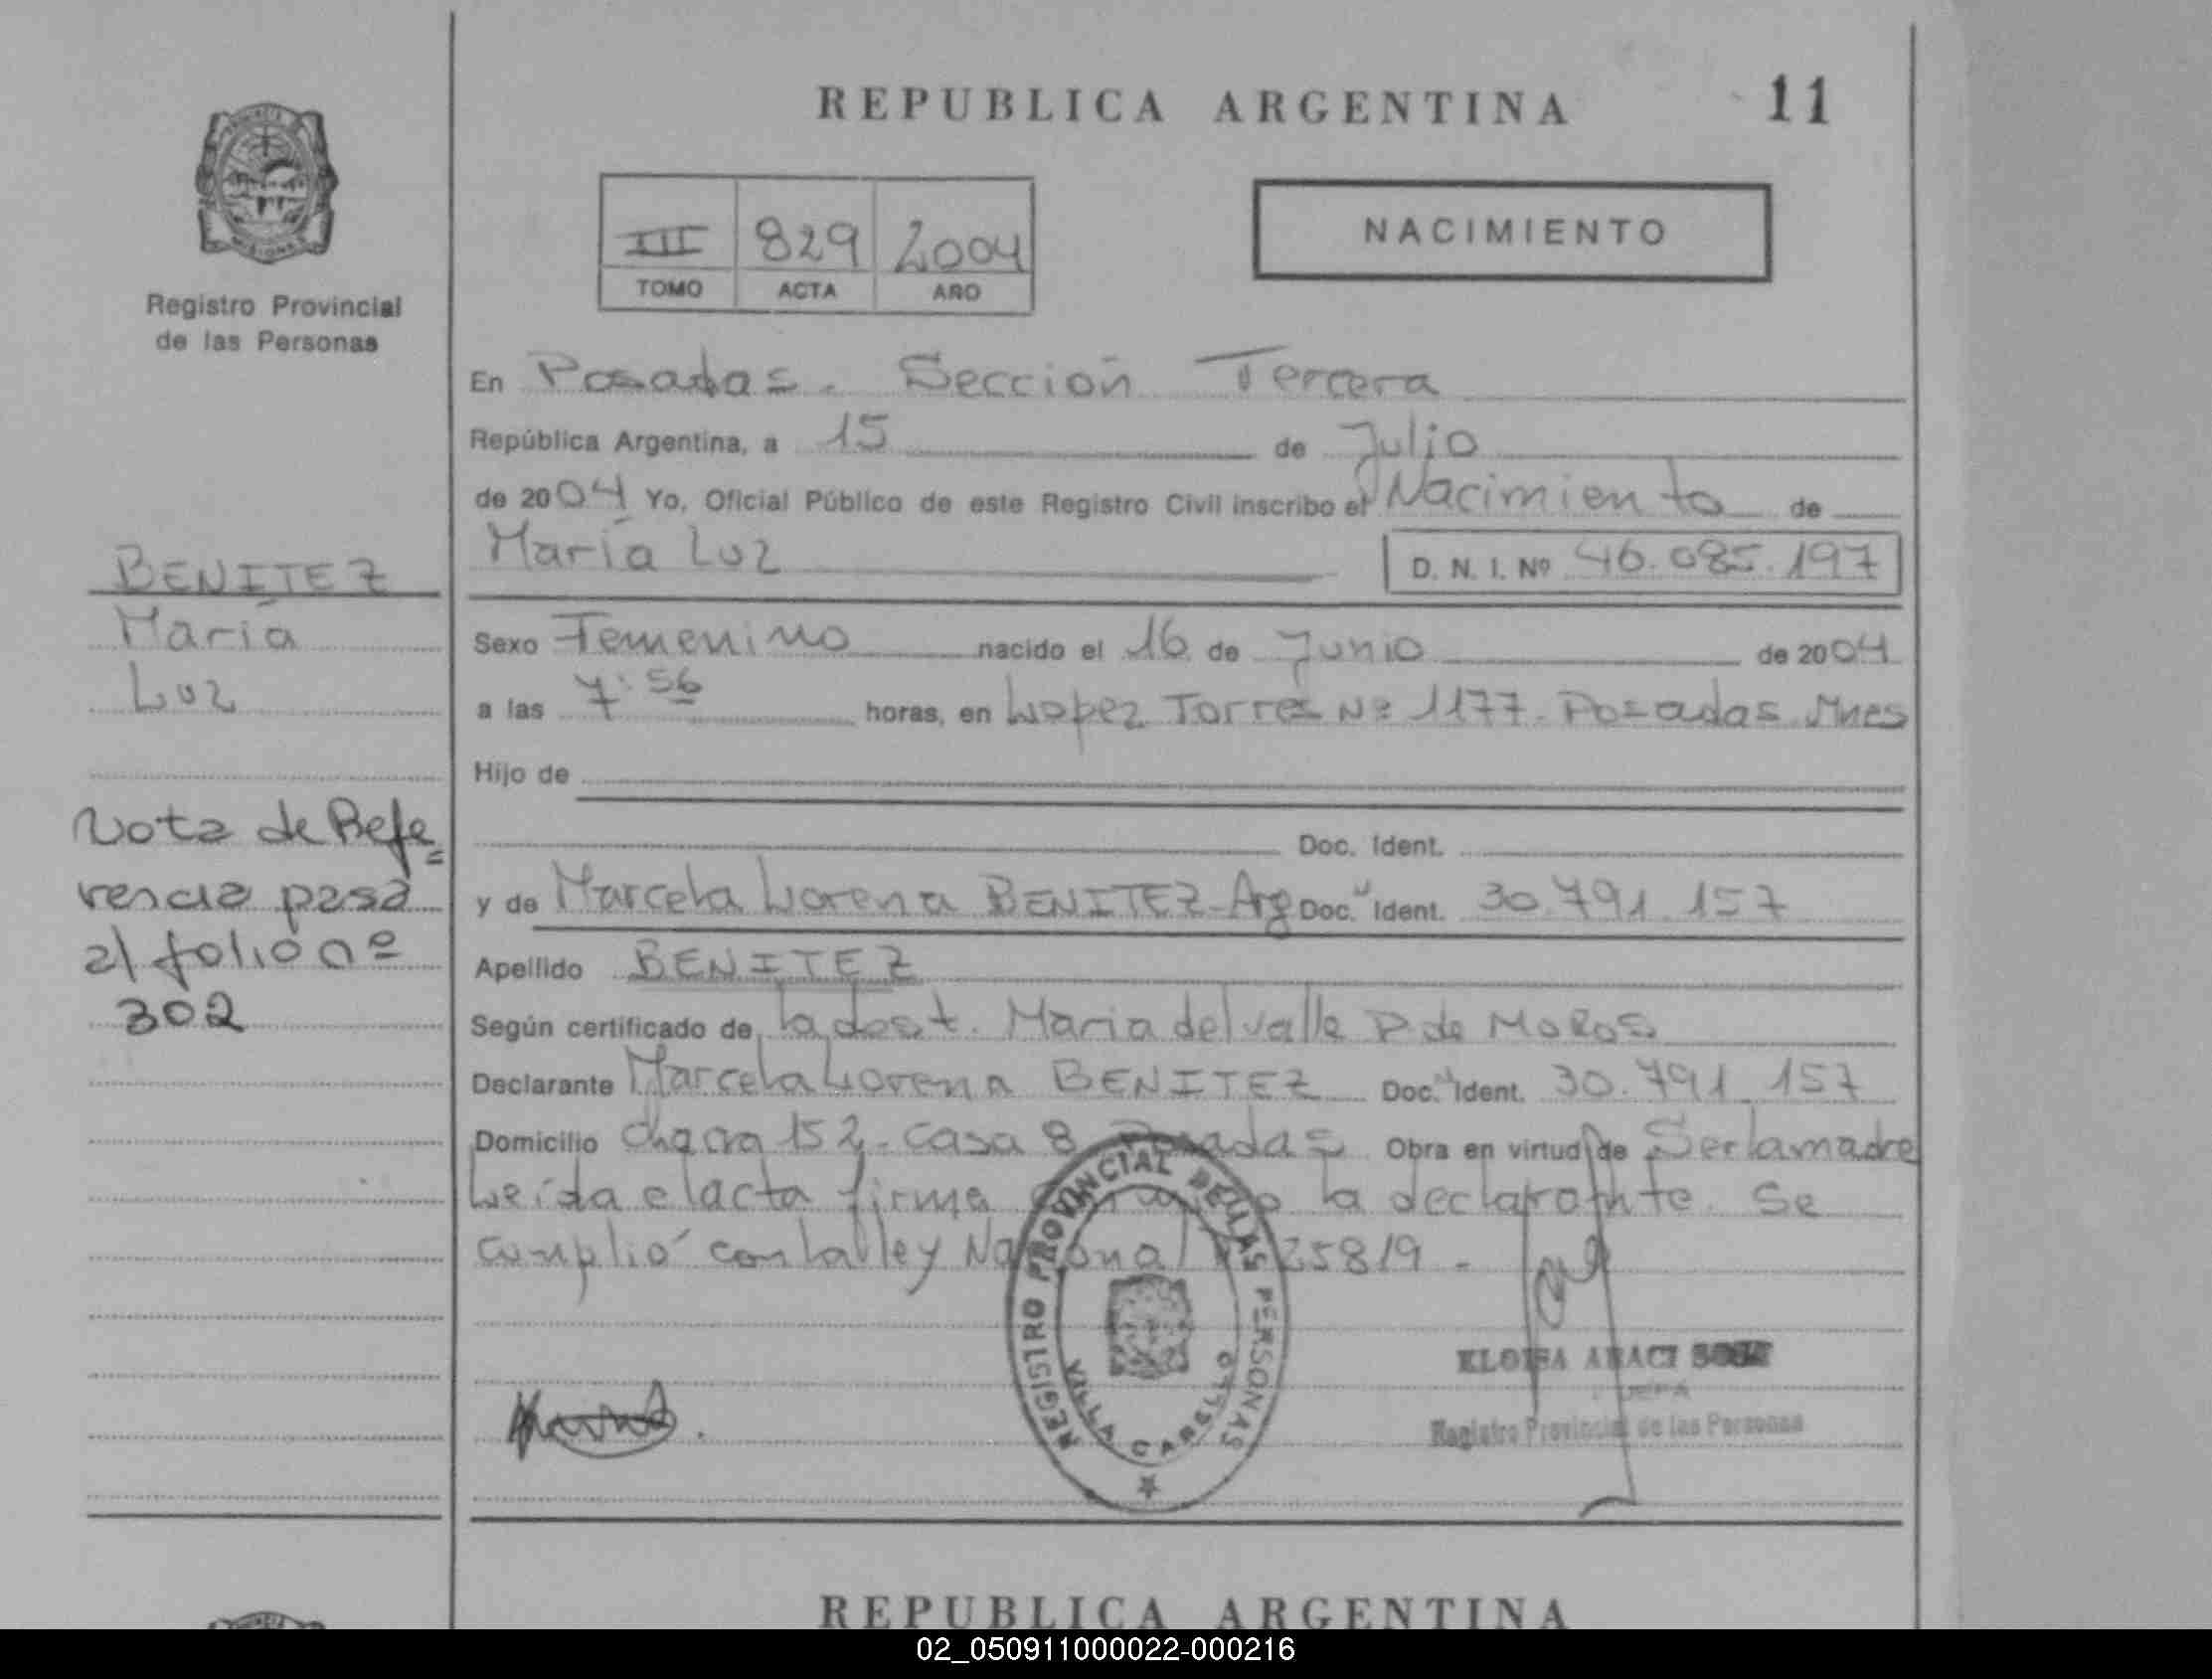 REPUBLICA ARGENTINA
11
PROVINCIA
MISIONES
Registro Provincial
de las Personas
III 829 2004
TOMO ACTA AÑO
NACIMIENTO
En Posadas. Sección Tercera
República Argentina, a 15 de Julio
de 2004 Yo, Oficial Público de este Registro Civil inscribo el Nacimiento de
María Luz D. N. I. Nº 46.085.197
BENITEZ
María
Luz
Sexo Femenino nacido el 16 de Junio de 2004
a las 7:56 horas, en Lopez Torres Nº 1177. Posadas Mnes
Hijo de
Doc. Ident.
y de Marcela Lorena BENITEZ-Arg Doc. Ident. 30.791.157
Apellido BENITEZ
Según certificado de la dost. Maria del valle P. de MoRos
Declarante Marcela Lorena BENITEZ Doc. Ident. 30.791.157
Domicilio Chacra 152-Casa 8 Posadas Obra en virtud de Ser la madre
Leída el acta firma la declarante. Se
cumplió con la ley Nacional 25819.-
Nota de Refe=
rencia pasa
al folio nº
302
REGISTRO PROVINCIAL DE LAS PERSONAS
VILLA CABELLO
ELOISA ARACI
JEFA
Registro Provincial de las Personas
REPUBLICA ARGENTINA
02_050911000022-000216